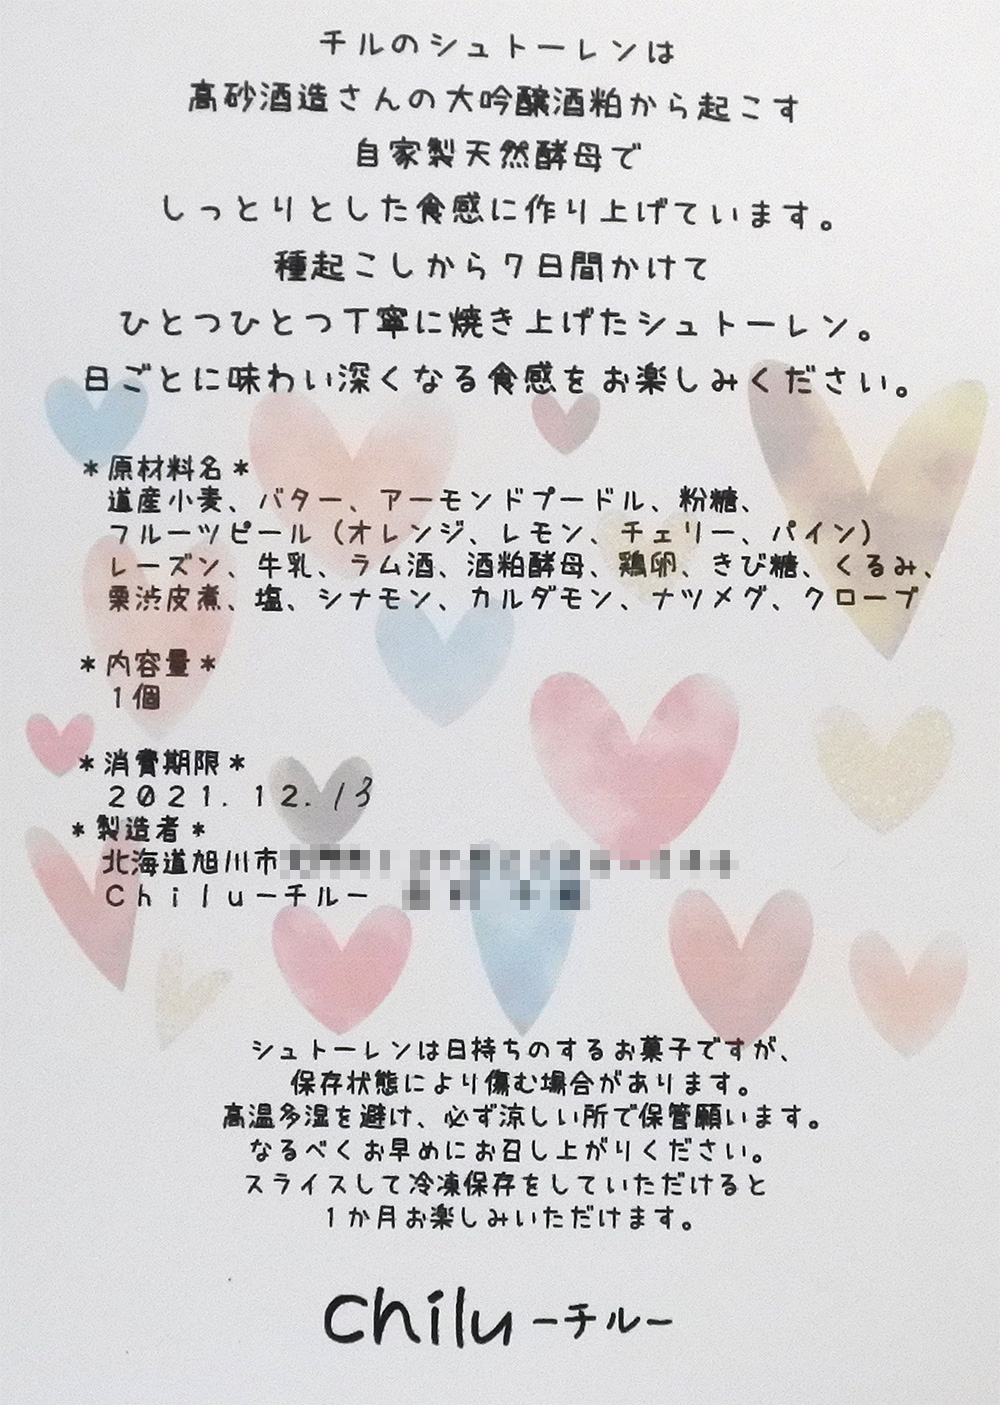 チルのシュトーレンは
高砂酒造さんの大吟醸酒粕から起こす
自家製天然酵母で
しっとりとした食感に作り上げています。
種起こしから7日間かけて
ひとつひとつ丁寧に焼き上げたシュトーレン。
日ごとに味わい深くなる食感をお楽しみください。
＊原材料名＊
道産小麦、バター、アーモンドプードル、粉糖、
フルーツピール（オレンジ、レモン、チェリー、パイン）
レーズン、牛乳、ラム酒、酒粕酵母、鶏卵、きび糖、くるみ、
栗渋皮煮、塩、シナモン、カルダモン、ナツメグ、クローブ
＊内容量＊
1個
＊消費期限＊
2021.12.13
＊製造者＊
北海道旭川市
Chilu－チル－
シュトーレンは日持ちのするお菓子ですが、
保存状態により傷む場合があります。
高温多湿を避け、必ず涼しい所で保管願います。
なるべくお早めにお召し上がりください。
スライスして冷凍保存をしていただけると
1か月お楽しみいただけます。
chilu－チル－